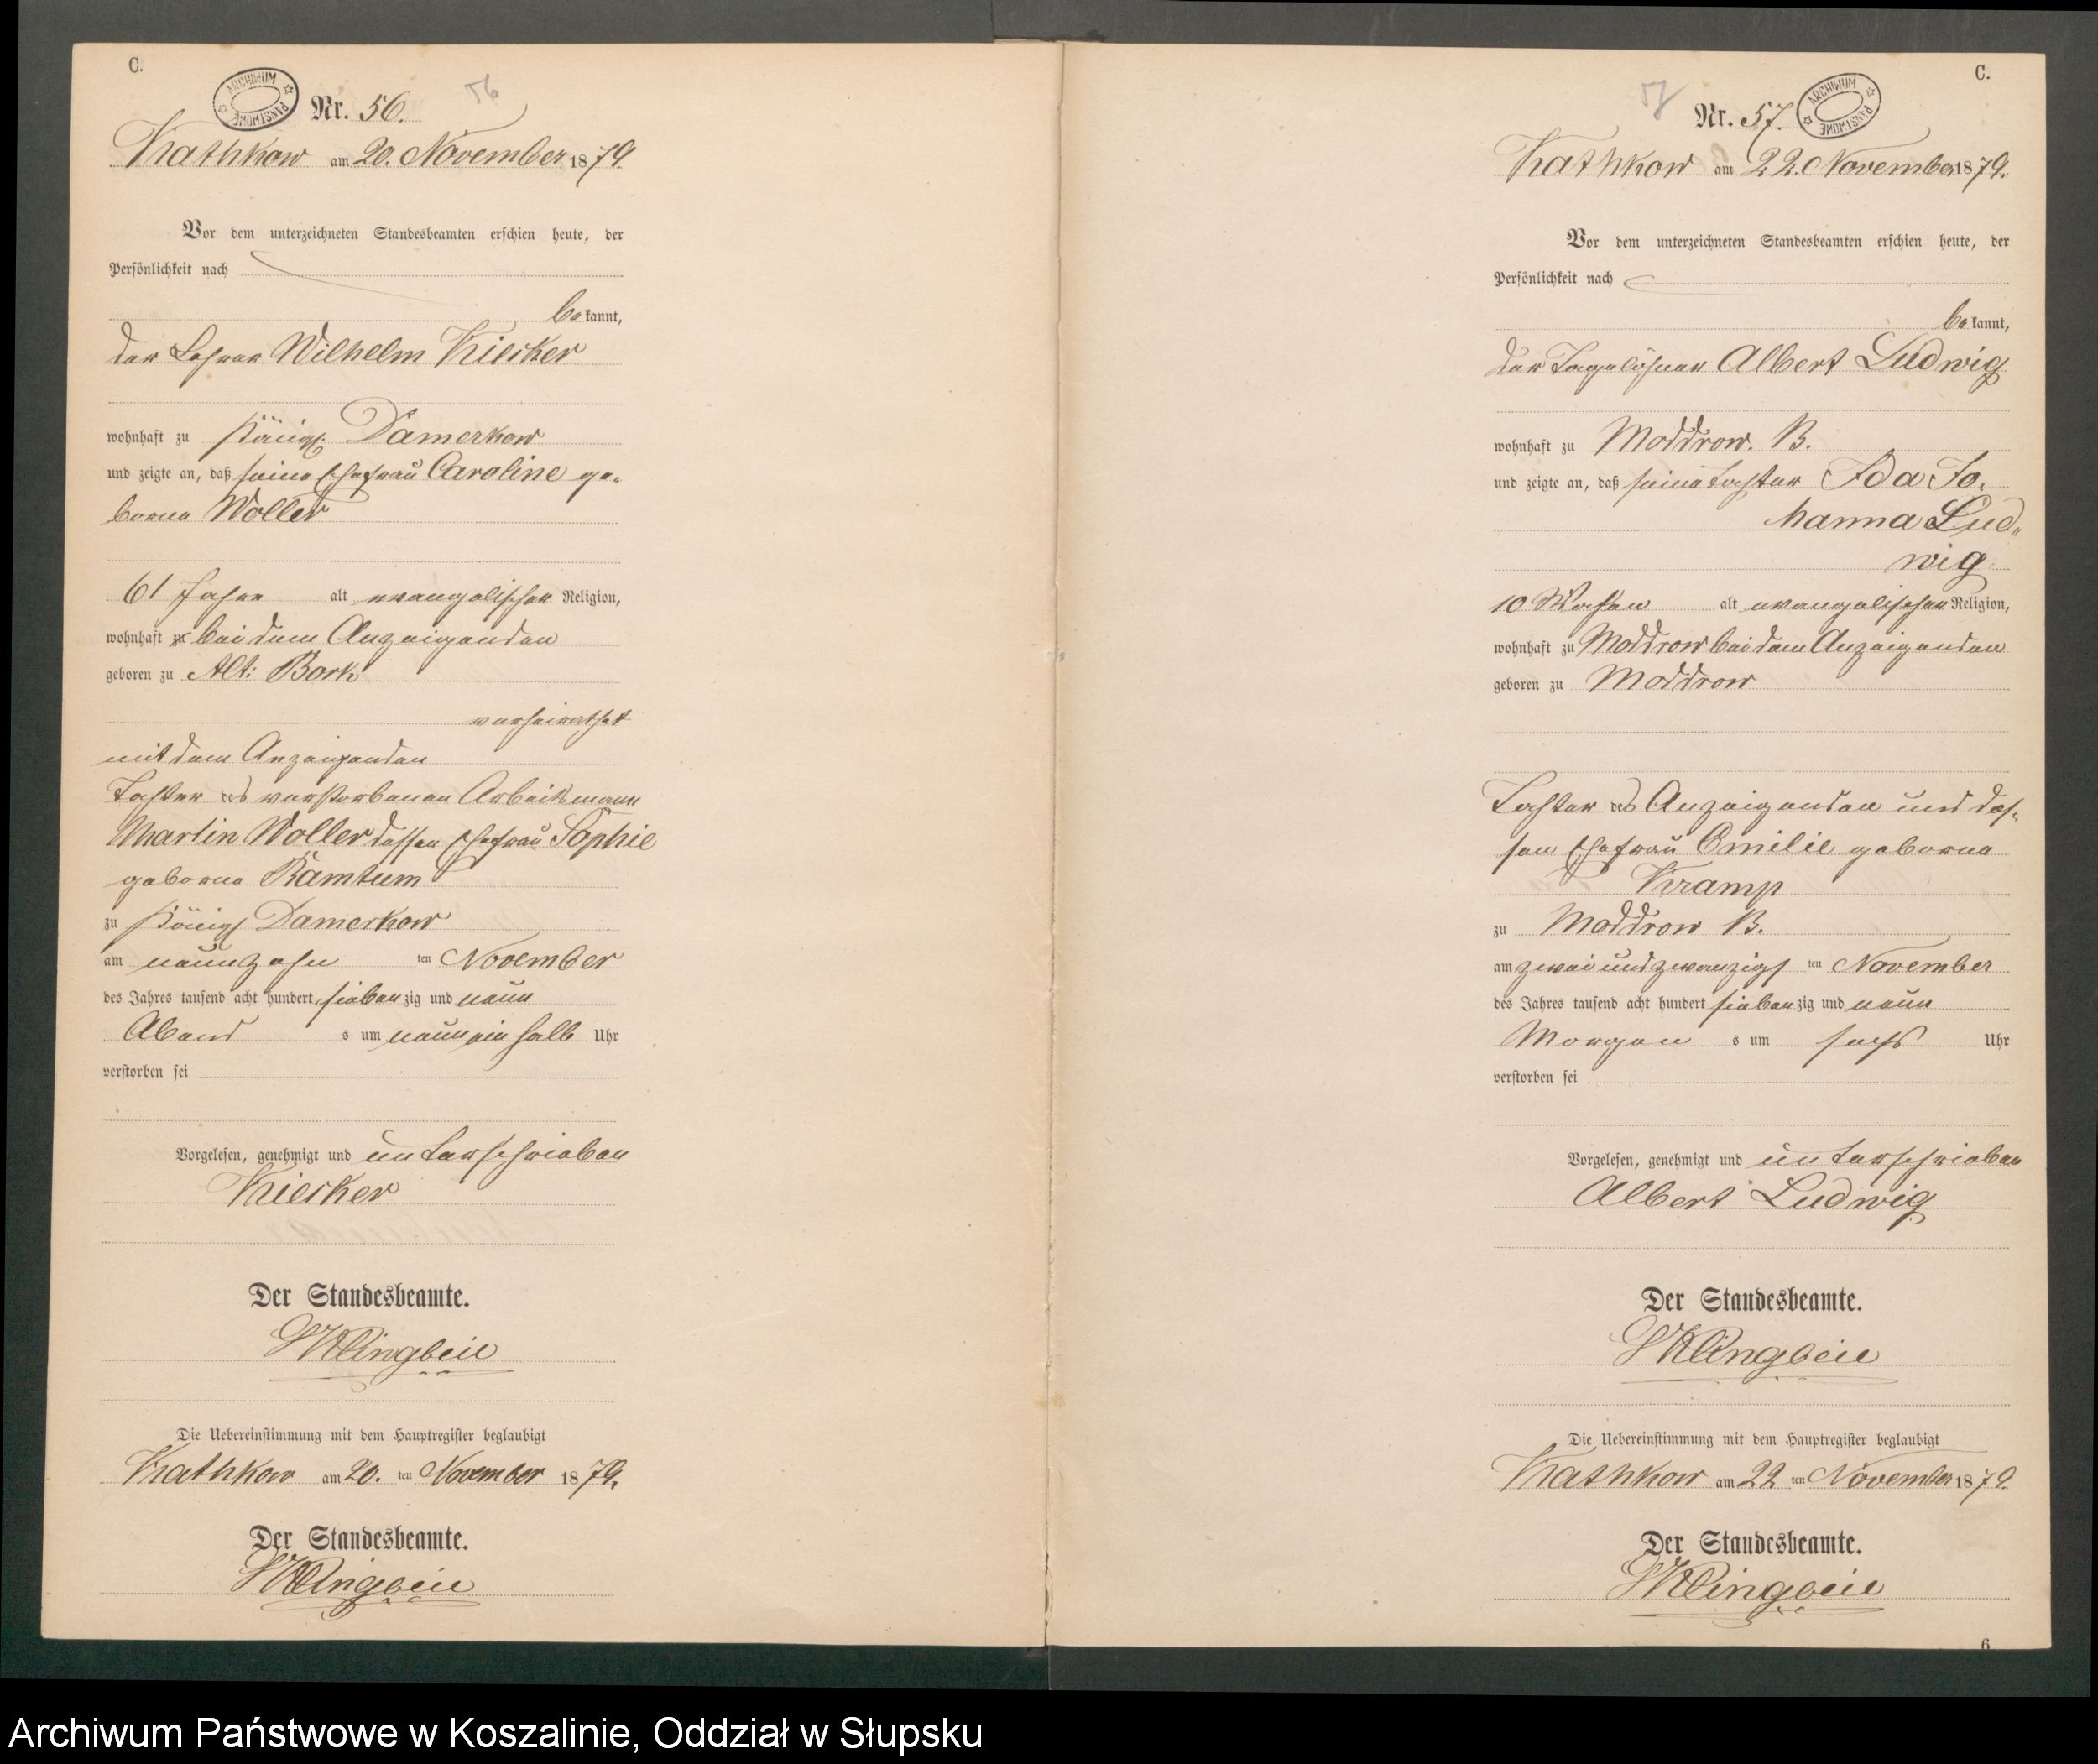 C.
ARCHIWUM PAŃSTWOWE
Nr. 56.
56
Krathkow am 20. November 1879.
Vor dem unterzeichneten Standesbeamten erschien heute, der
Persönlichkeit nach
bekannt,
der Lehrer Wilhelm Kiesker
wohnhaft zu Königl. Damerkow
und zeigte an, daß seine Ehefrau Caroline ge-
borne Woller
61 Jahre alt evangelischer Religion,
wohnhaft zu bei dem Anzeigenden
geboren zu Alt: Bork
verheirathet
mit dem Anzeigenden
Tochter des verstorbenen Arbeitsmann
Martin Woller dessen Ehefrau Sophie
geborne Ramtum
zu Königl Damerkow
am neunzehn ten November
des Jahres tausend acht hundert siebenzig und neun
Abend s um neun ein halb Uhr
verstorben sei
Vorgelesen, genehmigt und unterschrieben
Kiesker
Der Standesbeamte.
Klingbeil
Die Uebereinstimmung mit dem Hauptregister beglaubigt
Krathkow am 20. ten November 1879.
Der Standesbeamte.
Klingbeil
C.
57
Nr. 57.
ARCHIWUM PAŃSTWOWE
Krathkow am 22. November 1879.
Vor dem unterzeichneten Standesbeamten erschien heute, der
Persönlichkeit nach
bekannt,
der Tagelöhner Albert Ludwig
wohnhaft zu Moddrow. B.
und zeigte an, daß seine Tochter Ida Jo-
hanna Lud-
wig
10 Wochen alt evangelischer Religion,
wohnhaft zu Moddrow bei dem Anzeigenden
geboren zu Moddrow
Tochter des Anzeigenden und des-
sen Ehefrau Emilie geborne
Kramp
zu Moddrow B.
am zwei und zwanzigs ten November
des Jahres tausend acht hundert siebenzig und neun
Morgen s um sechs Uhr
verstorben sei
Vorgelesen, genehmigt und unterschrieben
Albert Ludwig
Der Standesbeamte.
Klingbeil
Die Uebereinstimmung mit dem Hauptregister beglaubigt
Krathkow am 22 ten November 1879.
Der Standesbeamte.
Klingbeil
6
Archiwum Państwowe w Koszalinie, Oddział w Słupsku